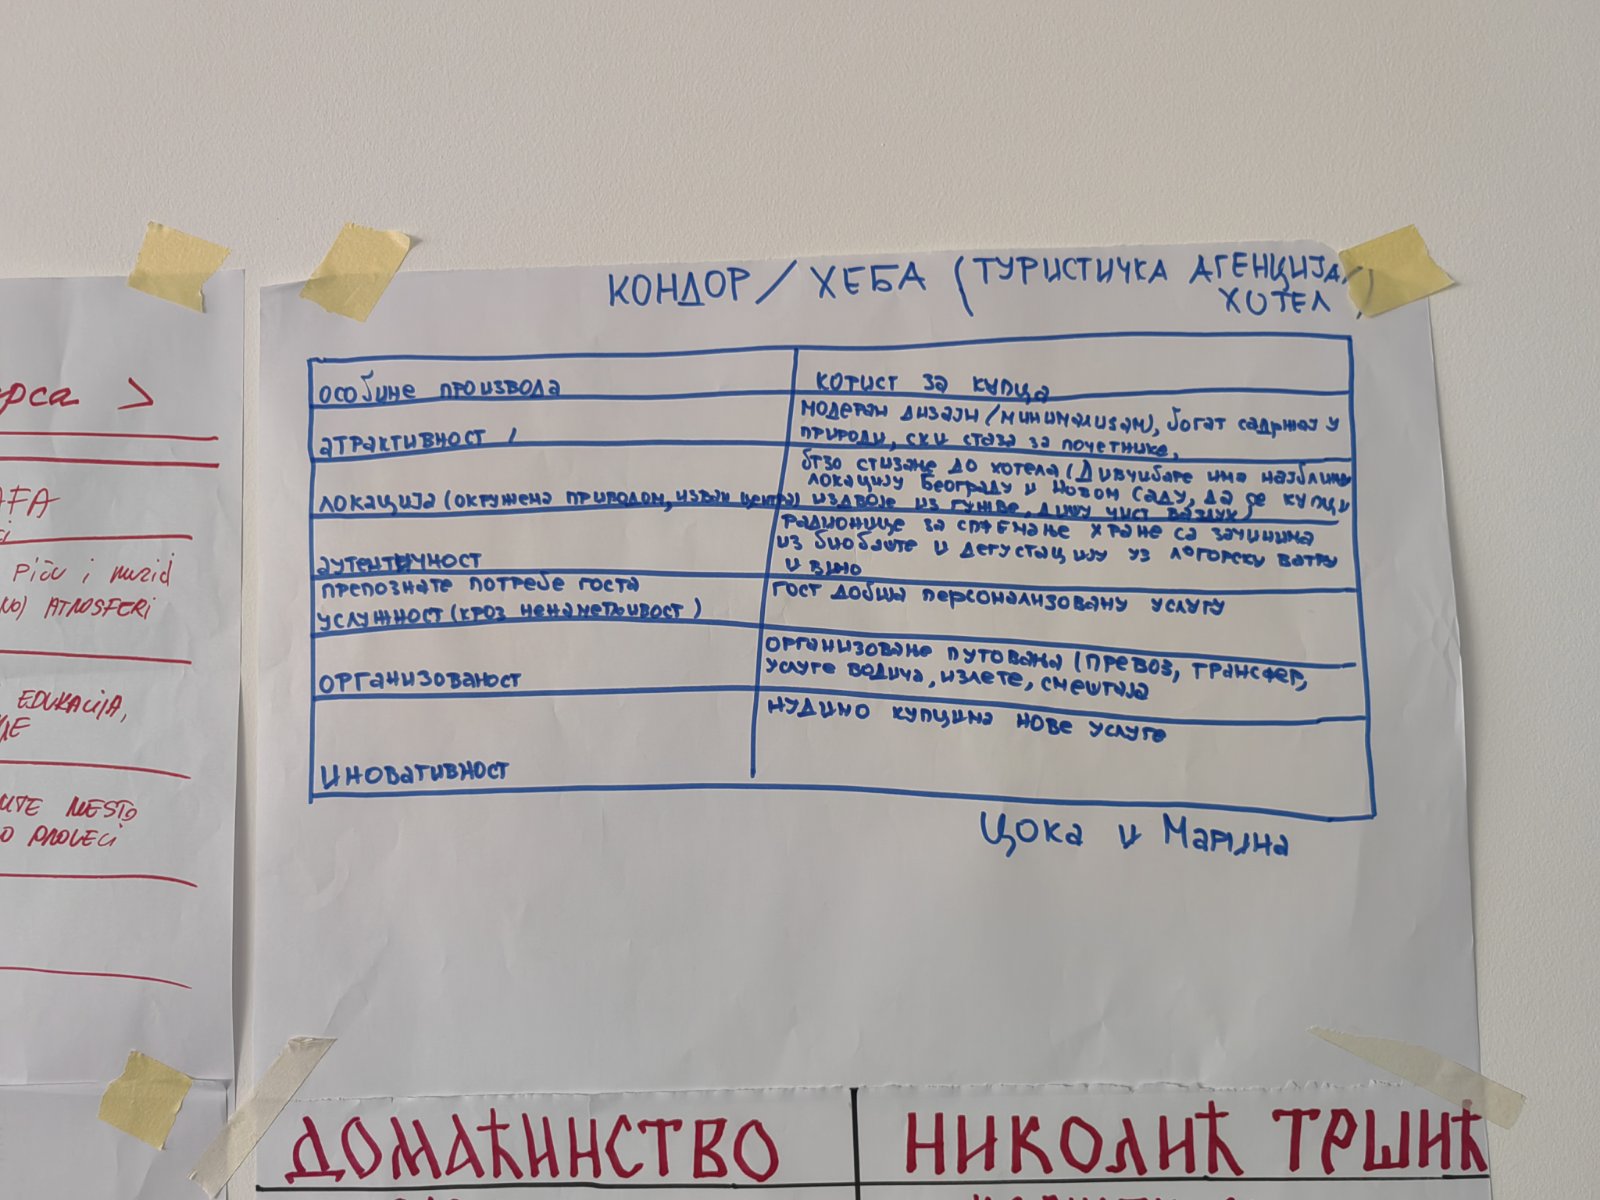 КОНДОР / ХЕБА (ТУРИСТИЧКА АГЕНЦИЈА/
ХОТЕЛ)
особине производа
корист за купца
атрактивност /
модеран дизајн (минимализам), богат садржај у
природи, ски стаза за почетнике,
локација (окружена природом, изван центра)
брзо стизање до хотела (Дивчибаре има најближу
локацију Београду и Новом Саду, да се купци
издвоје из гужве, дишу чист ваздух)
аутентичност
радионице за спремање хране са зачинима
из биобаште и дегустацију уз логорску ватру
и вино
препознате потребе госта
услужност (кроз ненаметљивост)
гост добија персонализовану услугу
организованост
организоване путовања (превоз, трансфер,
услуге водича, излете, смештаја
иновативност
нудимо купцима нове услуге
Цока и Маријана
рса >
AFA
ci
PIĆU I MUZICI
NO) ATMOSFERI
EDUKACIJA,
JE
MESTO
PROLEĆI
ДОМАЋИНСТВО
НИКОЛИЋ ТРШИЋ